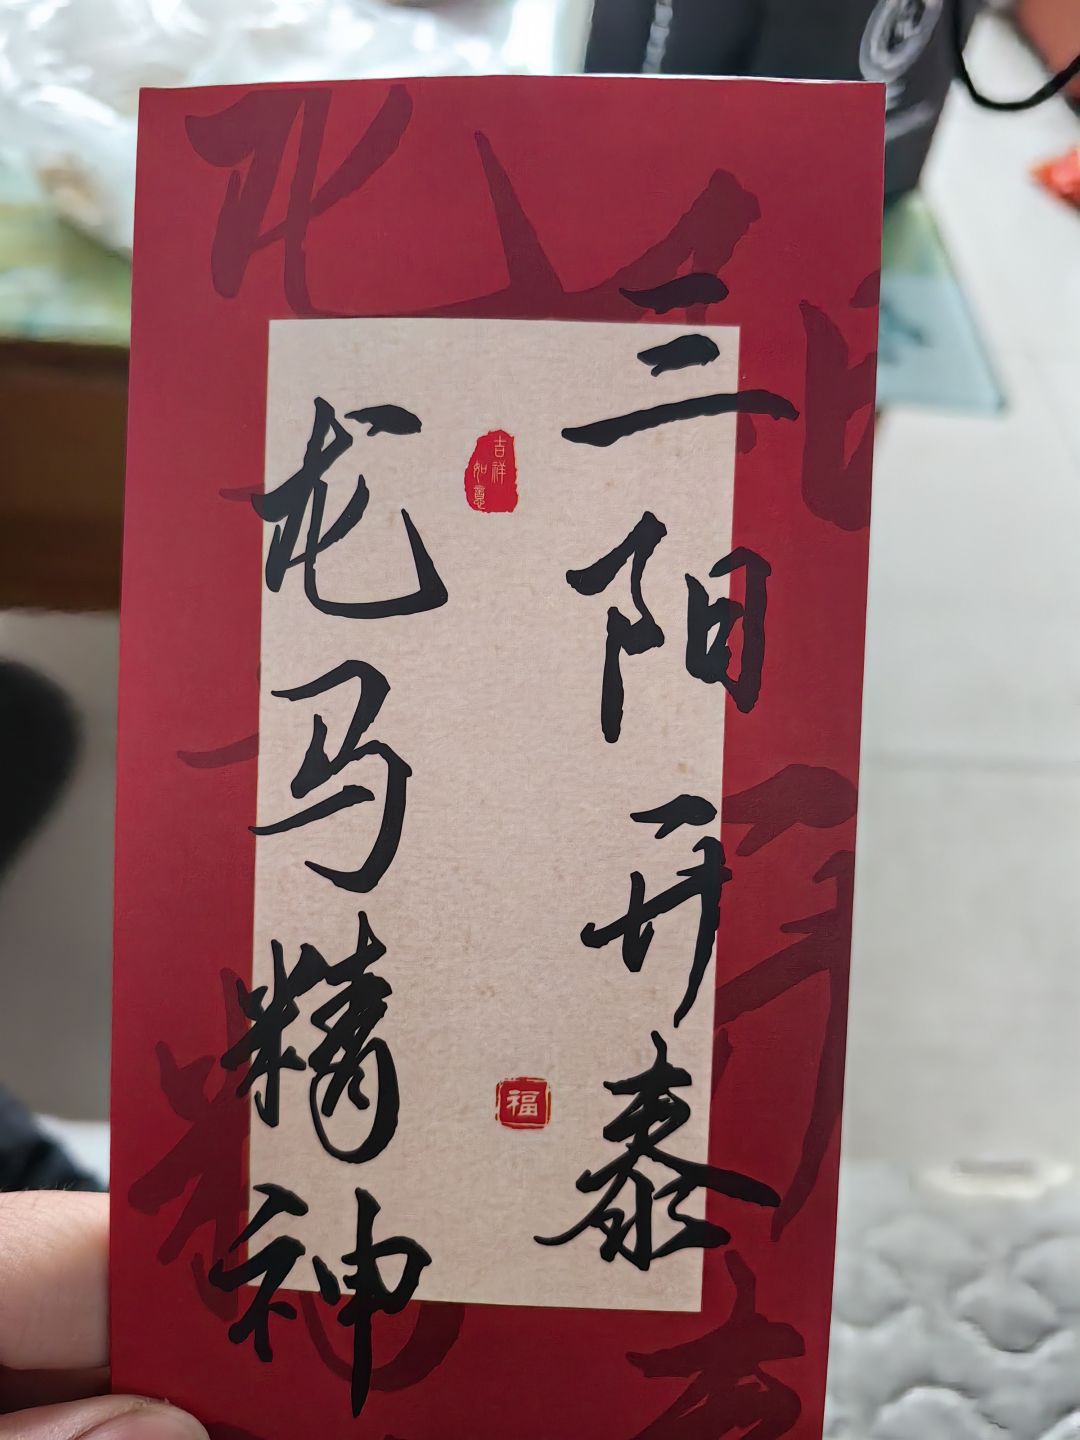 三阳开泰
龙马精神
吉祥
如意
福